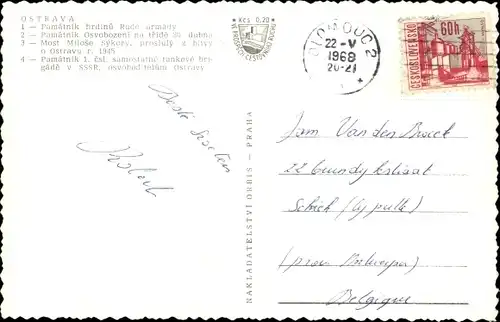 OSTRAVA
1 — Památník hrdinů Rudé armády
2 — Památník Osvobození na třídě 30. dubna
3 — Most Miloše Sýkory, proslulý z bitvy
o Ostravu r. 1945
4 — Památník 1. čsl. samostatné tankové bri-
gádě v SSSR, osvoboditelům Ostravy
Kčs 0,20
VE PROSPĚCH CESTOVNÍHO RUCHU
OLOMOUC 2
22.-V
1968
20-21
60h
ČESKOSLOVENSKO
Beste
Robert
NAKLADATELSTVÍ ORBIS - PRAHA
Jan Van den Broeck
22
(prov. Antwerpen)
Belgique